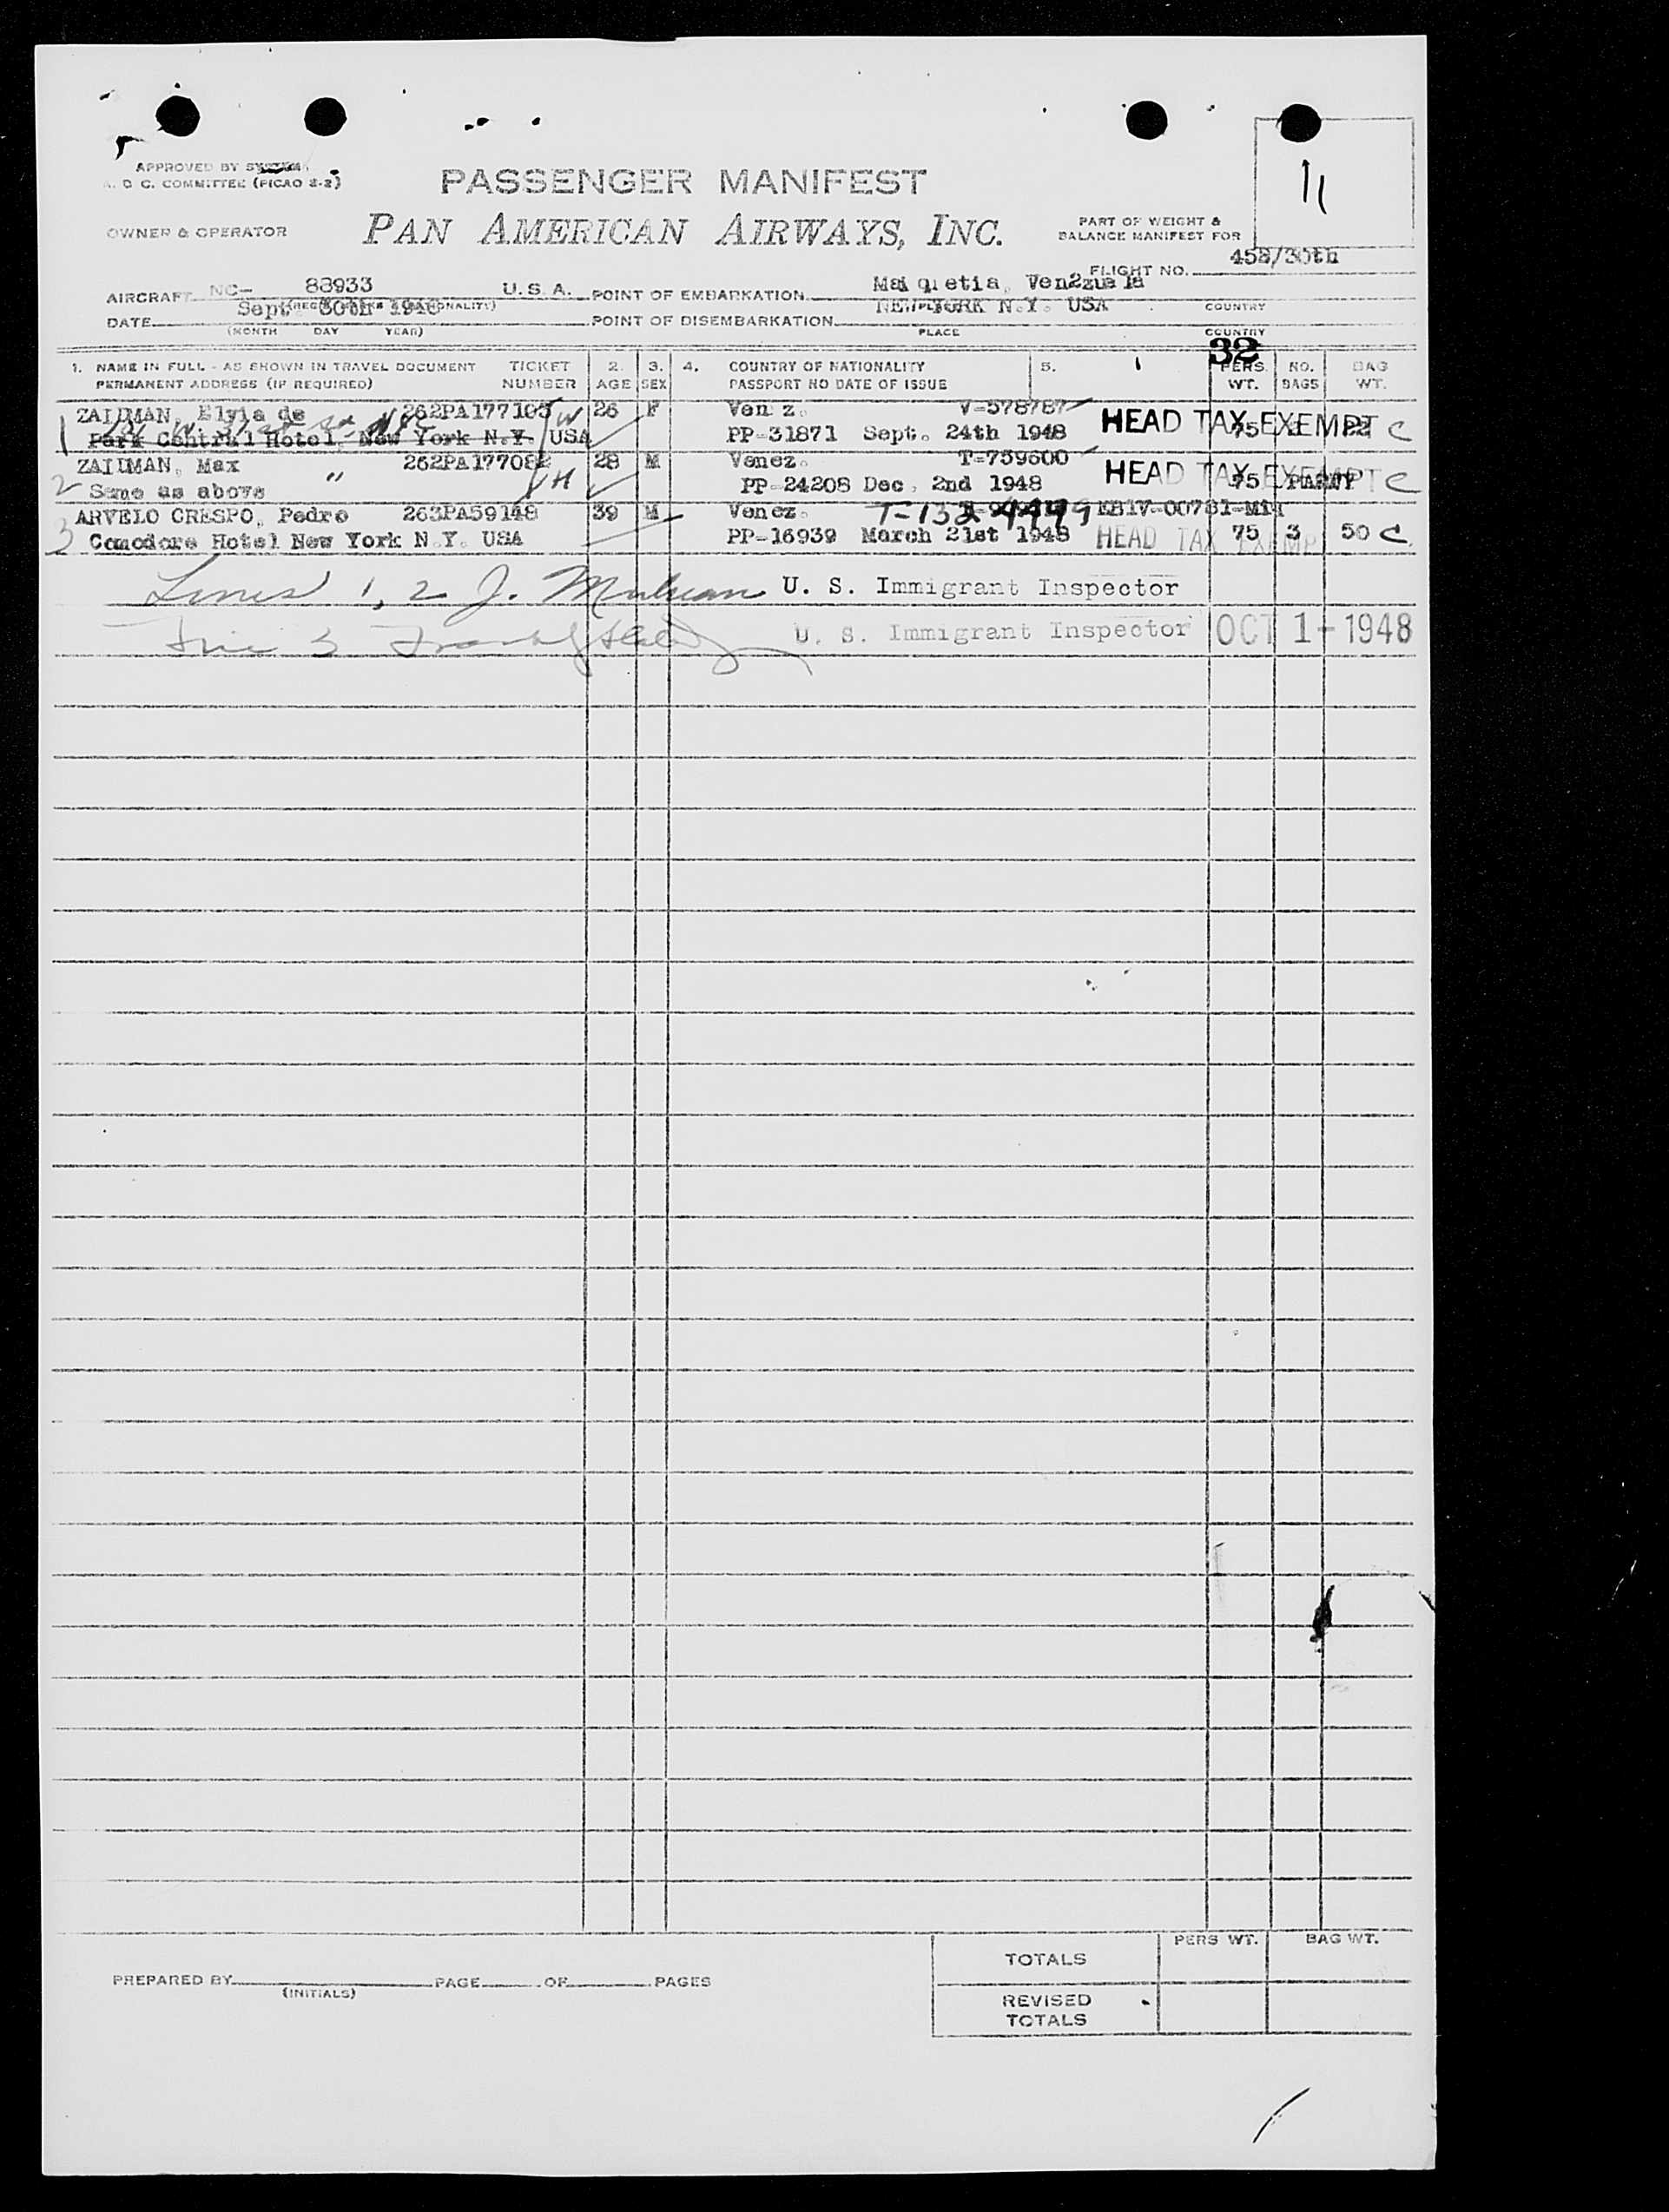 11
APPROVED BY SYSTEM
A. O C. COMMITTEE (PICAO 2-2)
PASSENGER MANIFEST
OWNER & OPERATOR
PAN AMERICAN AIRWAYS, INC.
PART OF WEIGHT &
BALANCE MANIFEST FOR
FLIGHT NO. 458/30th
AIRCRAFT NC- 88933 U.S.A. POINT OF EMBARKATION Maiquetia, Venezuela
DATE Sept. 30th 1948 POINT OF DISEMBARKATION NEW YORK N.Y. USA COUNTRY
(MONTH DAY YEAR) PLACE COUNTRY
32
1. NAME IN FULL - AS SHOWN IN TRAVEL DOCUMENT TICKET 2. 3. 4. COUNTRY OF NATIONALITY 5. PERS. NO. BAG
PERMANENT ADDRESS (IF REQUIRED) NUMBER AGE SEX PASSPORT NO DATE OF ISSUE WT. BAGS WT.
1 ZAIDMAN, Elvia de 262PA177105 W 26 F Venez. V-578787 HEAD TAX EXEMPT
Park Central Hotel, New York N.Y. USA PP-31871 Sept. 24th 1948 75 22 C
2 ZAIDMAN, Max " 262PA177082 H 28 M Venez. T-759600 HEAD TAX EXEMPT
Same as above PP-24208 Dec, 2nd 1948 75 PARTY C
3 ARVELO CRESPO, Pedro 263PA59148 39 M Venez. T-1324449
Comodore Hotel New York N.Y. USA PP-16939 March 21st 1948 HEAD TAX EXEMP 75 3 50 C
Lines 1, 2 J. U. S. Immigrant Inspector
Line 3 U. S. Immigrant Inspector OCT 1-1948
PREPARED BY PAGE OF PAGES
(INITIALS)
PERS WT. BAG WT.
TOTALS
REVISED
TOTALS